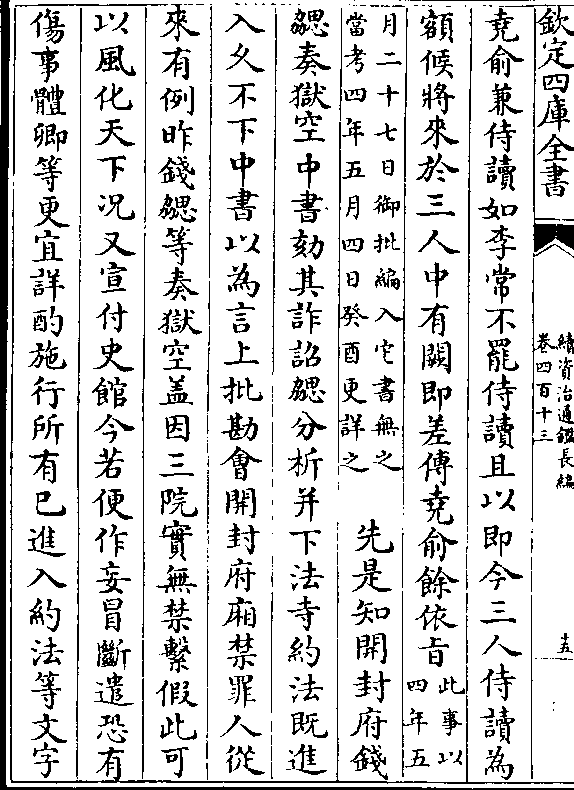 欽定四庫全書
續資治通鑑長編
卷四百十三
十五
堯俞兼侍讀如李常不罷侍讀且以即今三人侍讀為
額候將來於三人中有闕即差傅堯俞餘依旨此事以四年五
月二十七日御批編入宅書無之當考四年五月四日癸酉更詳之先是知開封府錢
勰奏獄空中書劾其詐詔勰分析并下法寺約法既進
入久不下中書以為言上批勘會開封府廂禁罪人從
來有例昨錢勰等奏獄空盖因三院實無禁繫假此可
以風化天下况又宣付史館今若便作妄冒斷遣恐有
傷事體卿等更宜詳酌施行所有已進入約法等文字